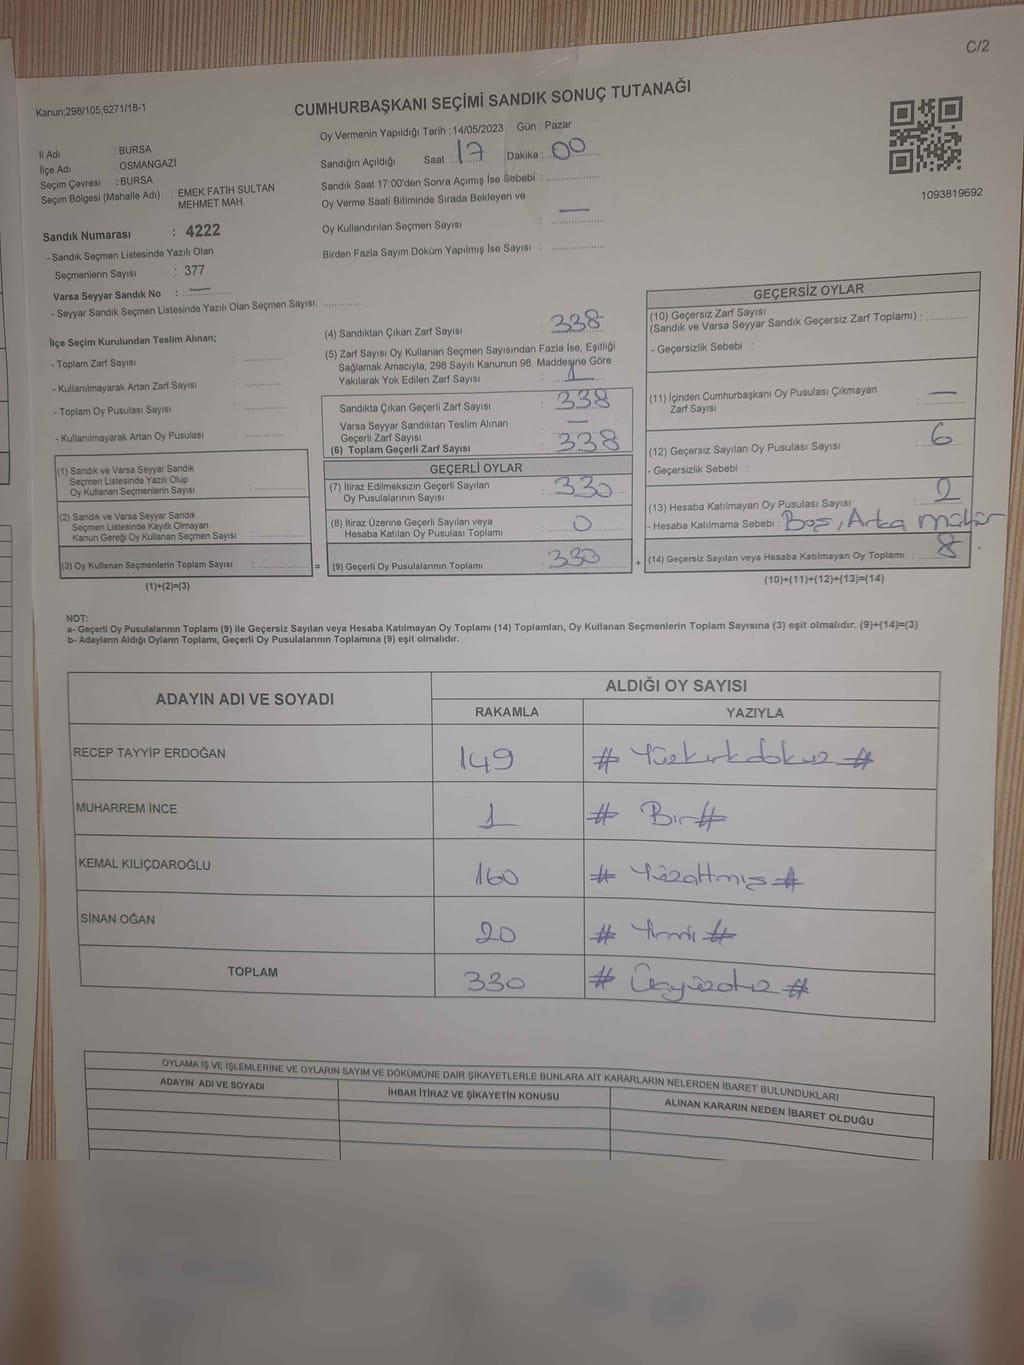 C/2
Kanun;298/105;6271/18-1
CUMHURBAŞKANI SEÇİMİ SANDIK SONUÇ TUTANAĞI
Oy Vermenin Yapıldığı Tarih : 14/05/2023 Gün : Pazar
İl Adı : BURSA
İlçe Adı : OSMANGAZİ
Seçim Çevresi : BURSA
Seçim Bölgesi (Mahalle Adı) : EMEK FATİH SULTAN
MEHMET MAH.
Sandık Numarası : 4222
- Sandık Seçmen Listesinde Yazılı Olan
Seçmenlerin Sayısı : 377
Varsa Seyyar Sandık No : —
- Seyyar Sandık Seçmen Listesinde Yazılı Olan Seçmen Sayısı:
Sandığın Açıldığı Saat : 17 Dakika : 00
Sandık Saat 17:00'den Sonra Açımış İse Sebebi :
Oy Verme Saati Bitiminde Sırada Bekleyen ve
Oy Kullandırılan Seçmen Sayısı : —
Birden Fazla Sayım Döküm Yapılmış İse Sayısı :
1093819692
İlçe Seçim Kurulundan Teslim Alınan;
- Toplam Zarf Sayısı :
- Kullanılmayarak Artan Zarf Sayısı :
- Toplam Oy Pusulası Sayısı :
- Kullanılmayarak Artan Oy Pusulası :
(1) Sandık ve Varsa Seyyar Sandık
Seçmen Listesinde Yazılı Olup
Oy Kullanan Seçmenlerin Sayısı :
(2) Sandık ve Varsa Seyyar Sandık
Seçmen Listesinde Kayıtlı Olmayan
Kanun Gereği Oy Kullanan Seçmen Sayısı :
(3) Oy Kullanan Seçmenlerin Toplam Sayısı : =
(1)+(2)=(3)
(4) Sandıktan Çıkan Zarf Sayısı : 338
(5) Zarf Sayısı Oy Kullanan Seçmen Sayısından Fazla İse, Eşitliği
Sağlamak Amacıyla; 298 Sayılı Kanunun 98. Maddesine Göre
Yakılarak Yok Edilen Zarf Sayısı : 1
Sandıkta Çıkan Geçerli Zarf Sayısı : 338
Varsa Seyyar Sandıktan Teslim Alınan
Geçerli Zarf Sayısı : —
(6) Toplam Geçerli Zarf Sayısı : 338
GEÇERLİ OYLAR
(7) İtiraz Edilmeksizin Geçerli Sayılan
Oy Pusulalarının Sayısı : 330
(8) İtiraz Üzerine Geçerli Sayılan veya
Hesaba Katılan Oy Pusulası Toplamı : 0
(9) Geçerli Oy Pusulalarının Toplamı : 330 +
GEÇERSİZ OYLAR
(10) Geçersiz Zarf Sayısı
(Sandık ve Varsa Seyyar Sandık Geçersiz Zarf Toplamı) :
- Geçersizlik Sebebi :
(11) İçinden Cumhurbaşkanı Oy Pusulası Çıkmayan
Zarf Sayısı : —
(12) Geçersiz Sayılan Oy Pusulası Sayısı : 6
- Geçersizlik Sebebi :
(13) Hesaba Katılmayan Oy Pusulası Sayısı : 2
- Hesaba Katılmama Sebebi : Boş, Arka mühür
(14) Geçersiz Sayılan veya Hesaba Katılmayan Oy Toplamı : 8
(10)+(11)+(12)+(13)=(14)
NOT:
a- Geçerli Oy Pusulalarının Toplamı (9) ile Geçersiz Sayılan veya Hesaba Katılmayan Oy Toplamı (14) Toplamları, Oy Kullanan Seçmenlerin Toplam Sayısına (3) eşit olmalıdır. (9)+(14)=(3)
b- Adayların Aldığı Oyların Toplamı, Geçerli Oy Pusulalarının Toplamına (9) eşit olmalıdır.
ADAYIN ADI VE SOYADI ALDIĞI OY SAYISI
RAKAMLA YAZIYLA
RECEP TAYYİP ERDOĞAN 149 # Yüzkırkdokuz #
MUHARREM İNCE 1 # Bir #
KEMAL KILIÇDAROĞLU 160 # Yüzaltmış #
SİNAN OĞAN 20 # Yirmi #
TOPLAM 330 # Üçyüzotuz #
OYLAMA İŞ VE İŞLEMLERİNE VE OYLARIN SAYIM VE DÖKÜMÜNE DAİR ŞİKAYETLERLE BUNLARA AİT KARARLARIN NELERDEN İBARET BULUNDUKLARI
ADAYIN ADI VE SOYADI İHBAR İTİRAZ VE ŞİKAYETİN KONUSU ALINAN KARARIN NEDEN İBARET OLDUĞU